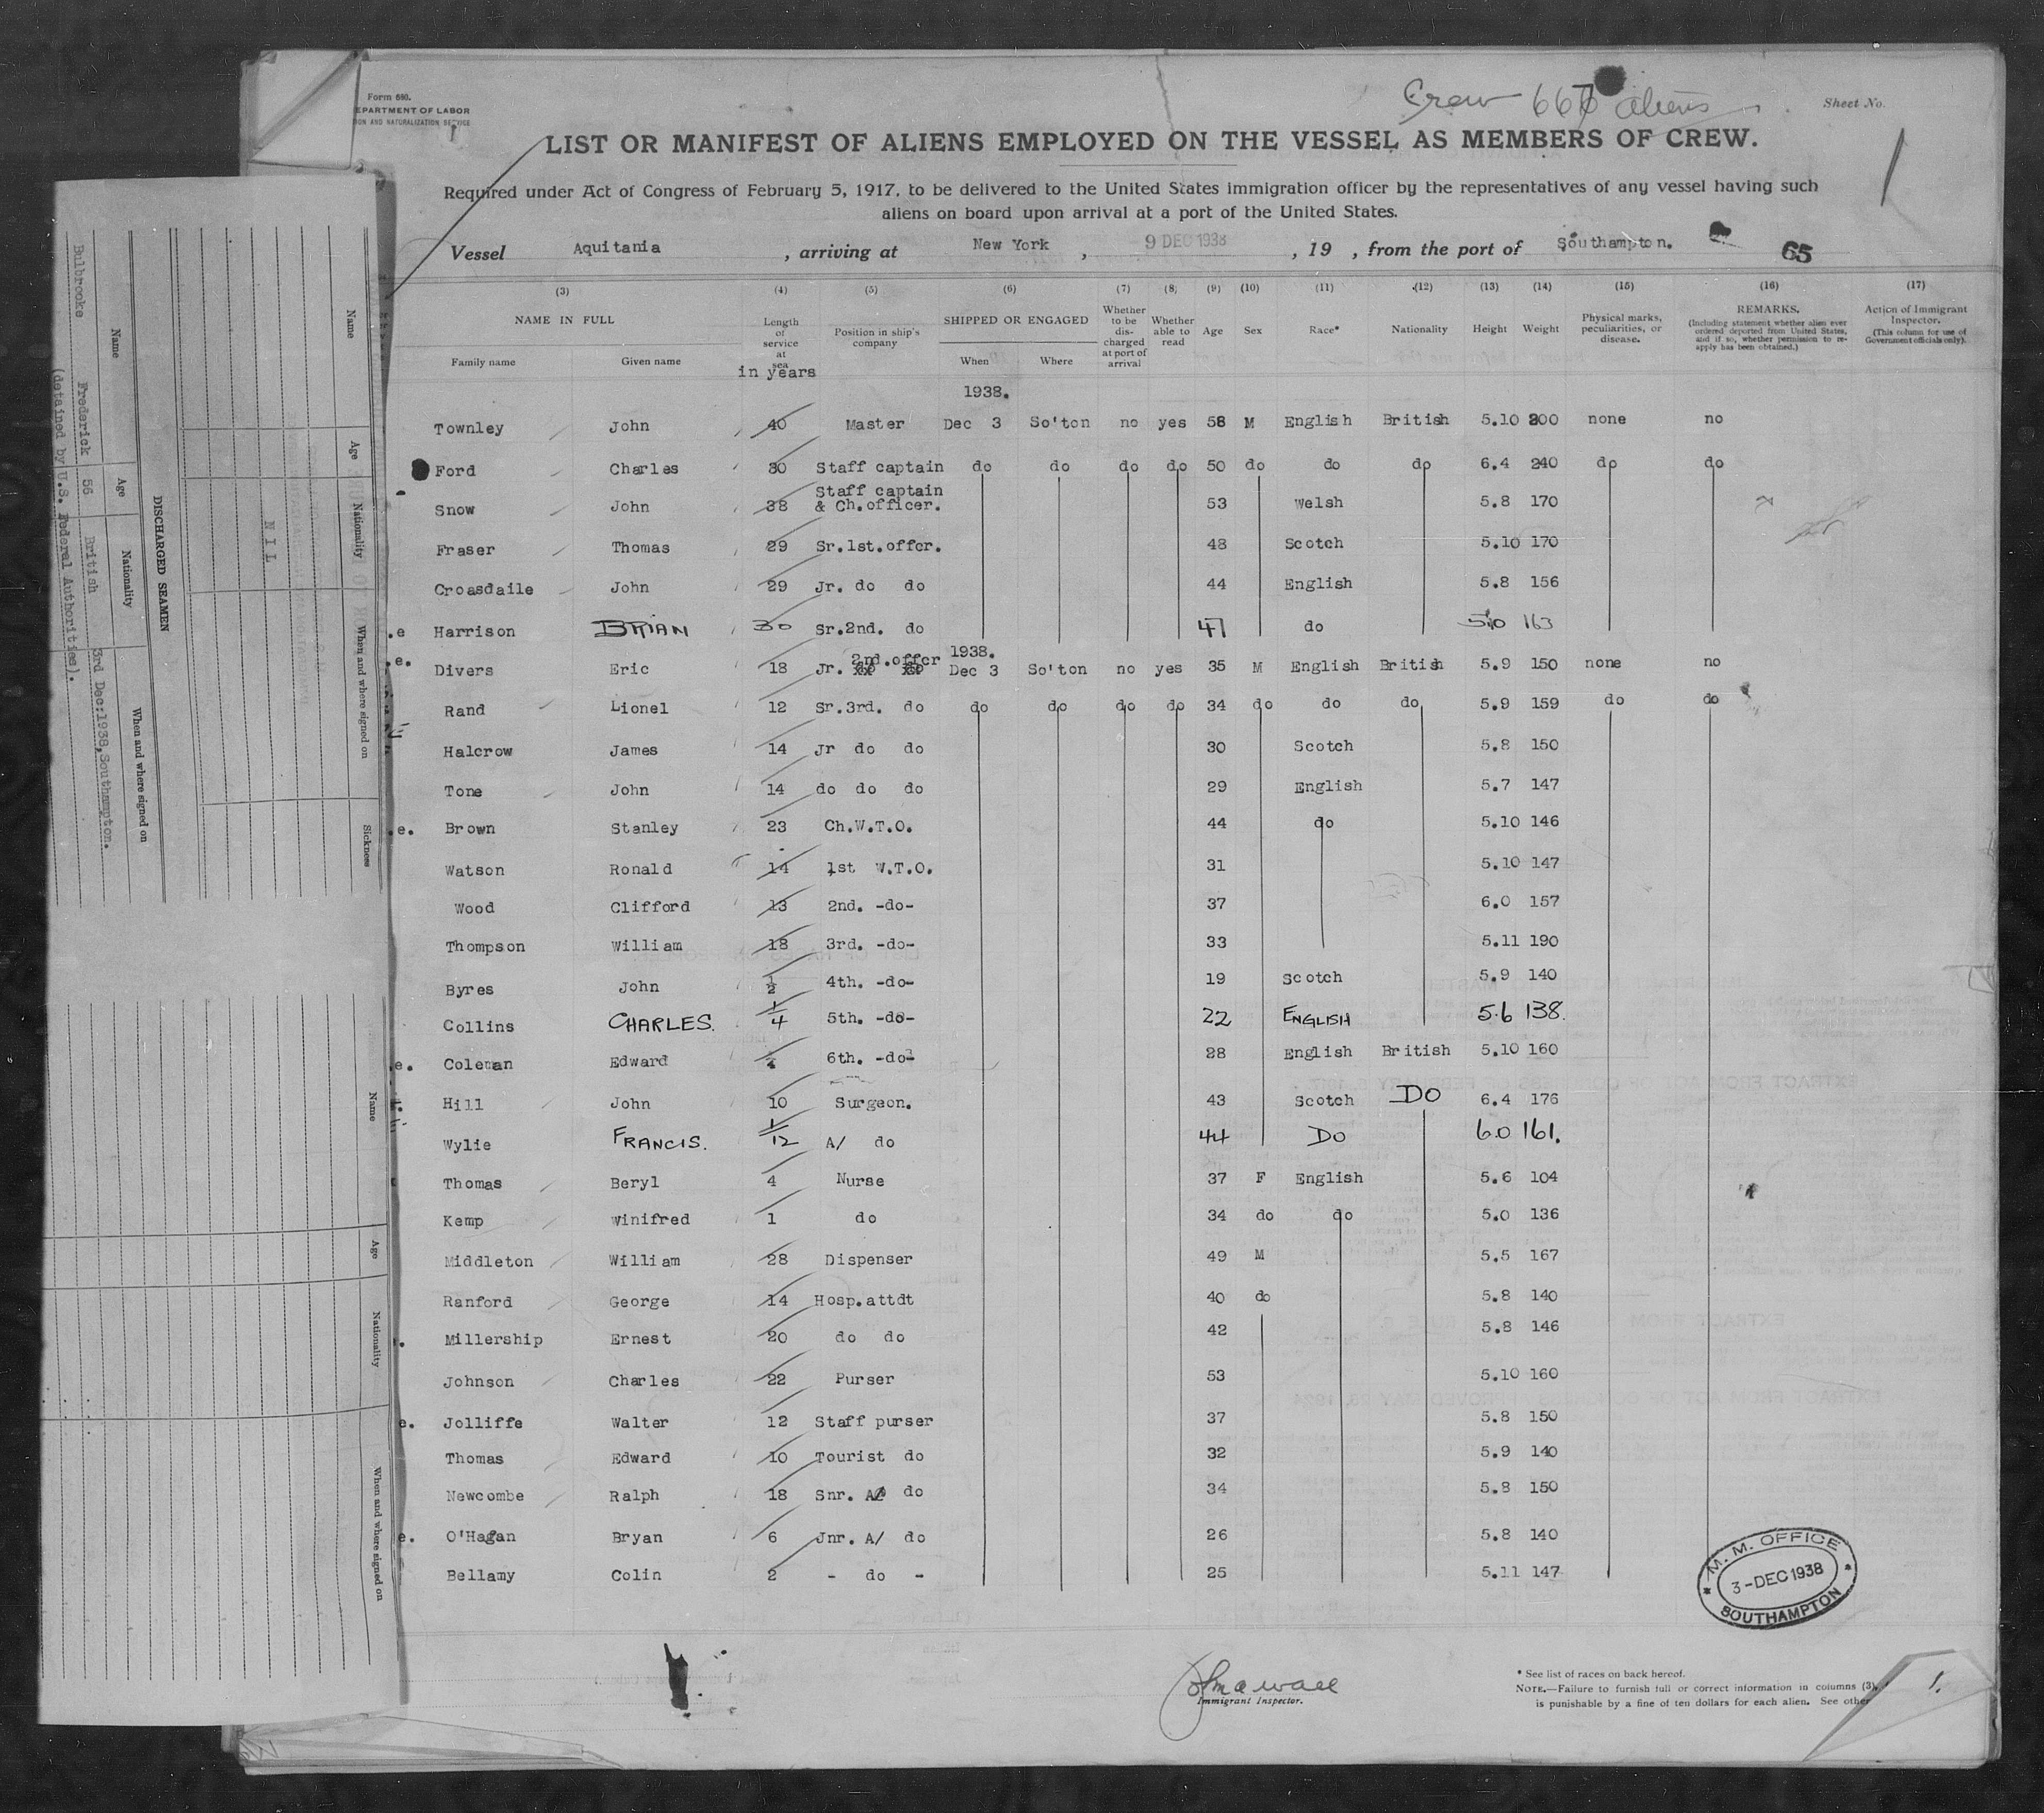 Form 680.
EPARTMENT OF LABOR
ION AND NATURALIZATION SERVICE
Crew 667 aliens
Sheet No.
1
LIST OR MANIFEST OF ALIENS EMPLOYED ON THE VESSEL AS MEMBERS OF CREW.
Required under Act of Congress of February 5, 1917, to be delivered to the United States immigration officer by the representatives of any vessel having such
aliens on board upon arrival at a port of the United States.
Vessel Aquitania , arriving at New York , 9 DEC 1938 , 19 , from the port of Southampton. 65
(3) (4) (5) (6) (7) (8) (9) (10) (11) (12) (13) (14) (15) (16) (17)
NAME IN FULL Length of service at sea in years Position in ship's company SHIPPED OR ENGAGED Whether to be discharged at port of arrival Whether able to read Age Sex Race* Nationality Height Weight Physical marks, peculiarities, or disease. REMARKS. (Including statement whether alien ever ordered deported from United States, and if so, whether permission to reapply has been obtained.) Action of Immigrant Inspector. (This column for use of Government officials only).
Family name Given name When Where
1938.
Townley John 40 Master Dec 3 So'ton no yes 58 M English British 5.10 200 none no
Ford Charles 30 Staff captain do do do do 50 do do do 6.4 240 do do
Snow John 38 Staff captain & Ch.officer. 53 Welsh 5.8 170
Fraser Thomas 29 Sr.1st.offcr. 48 Scotch 5.10 170
Croasdaile John 29 Jr. do do 44 English 5.8 156
.e Harrison BRIAN 30 Sr.2nd. do 47 do 5.10 163
.e. Divers Eric 18 Jr. 2nd.offcr 1938. Dec 3 So'ton no yes 35 M English British 5.9 150 none no
Rand Lionel 12 Sr.3rd. do do do do do 34 do do do 5.9 159 do do
Halcrow James 14 Jr do do 30 Scotch 5.8 150
Tone John 14 do do do 29 English 5.7 147
.e. Brown Stanley 23 Ch.W.T.O. 44 do 5.10 146
Watson Ronald 14 1st W.T.O. 31 5.10 147
Wood Clifford 13 2nd. -do- 37 6.0 157
Thompson William 18 3rd. -do- 33 5.11 190
Byres John 1/2 4th. -do- 19 Scotch 5.9 140
Collins CHARLES. 1/4 5th. -do- 22 ENGLISH 5.6 138.
e. Coleman Edward 6th. -do- 28 English British 5.10 160
Hill John 10 Surgeon. 43 Scotch DO 6.4 176
Wylie FRANCIS. 1/12 A/ do 44 DO 6.0 161.
Thomas Beryl 4 Nurse 37 F English 5.6 104
Kemp Winifred 1 do 34 do do 5.0 136
Middleton William 28 Dispenser 49 M 5.5 167
Ranford George 14 Hosp.attdt 40 do 5.8 140
Millership Ernest 20 do do 42 5.8 146
Johnson Charles 22 Purser 53 5.10 160
e. Jolliffe Walter 12 Staff purser 37 5.8 150
Thomas Edward 10 Tourist do 32 5.9 140
Newcombe Ralph 18 Snr. A/ do 34 5.8 150
e. O'Hagan Bryan 6 Jnr. A/ do 26 5.8 140
Bellamy Colin 2 - do - 25 5.11 147
M. M. OFFICE
3-DEC 1938
SOUTHAMPTON
Immigrant Inspector.
* See list of races on back hereof.
NOTE.—Failure to furnish full or correct information in columns (3),
is punishable by a fine of ten dollars for each alien. See other
1.
Name Age Nationality When and where signed on Sickness
NIL
DISCHARGED SEAMEN
Name Age Nationality When and where signed on
Bulbrooke Frederick 56 British 3rd Dec:1938,Southampton.
(detained by U.S. Federal Authorities).
Name Age Nationality When and where signed on